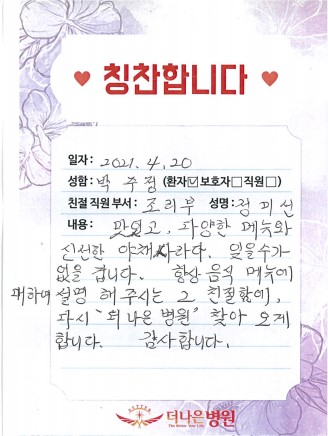 ♥ 칭찬합니다 ♥
일자: 2021. 4. 20
성함: 박 주 정 (환자☑보호자□직원□)
친절 직원 부서: 조리부 성명: 정미선
내용: 맛있고, 다양한 메뉴와
신선한 야채 사라다. 잊을수가
없을 겁니다. 항상 음식 메뉴에
대하여 설명 해 주시는 그 친절함에,
다시 "더나은 병원" 찾아 오게
합니다. 감사합니다.
BETTER
더나은병원